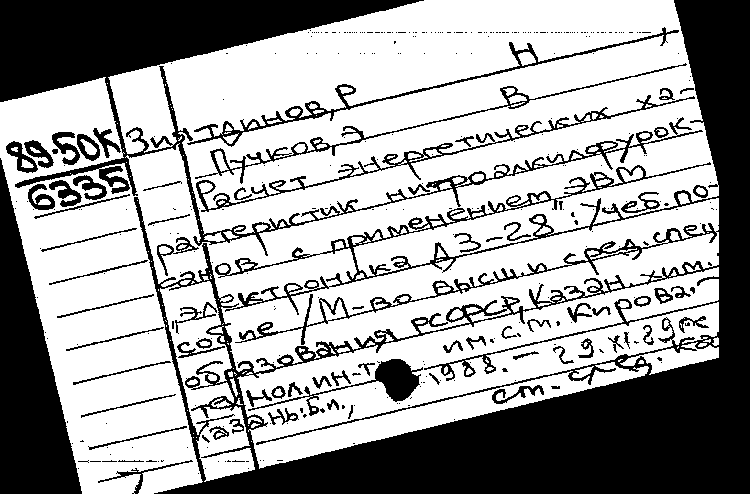 89-50К
6335
Зиятдинов, Р Н
Пучков, Э В
Расчет энергетических ха-
рактеристик нитроалкилфурок-
санов с применением ЭВМ
"Электроника ДЗ-28": Учеб. по-
собие / М-во высш. и сред. спец.
образования РСФСР, Казан. хим.-
технол. ин-т им. С.М. Кирова.-
Казань: Б.и., 1988. - 29.XI.89